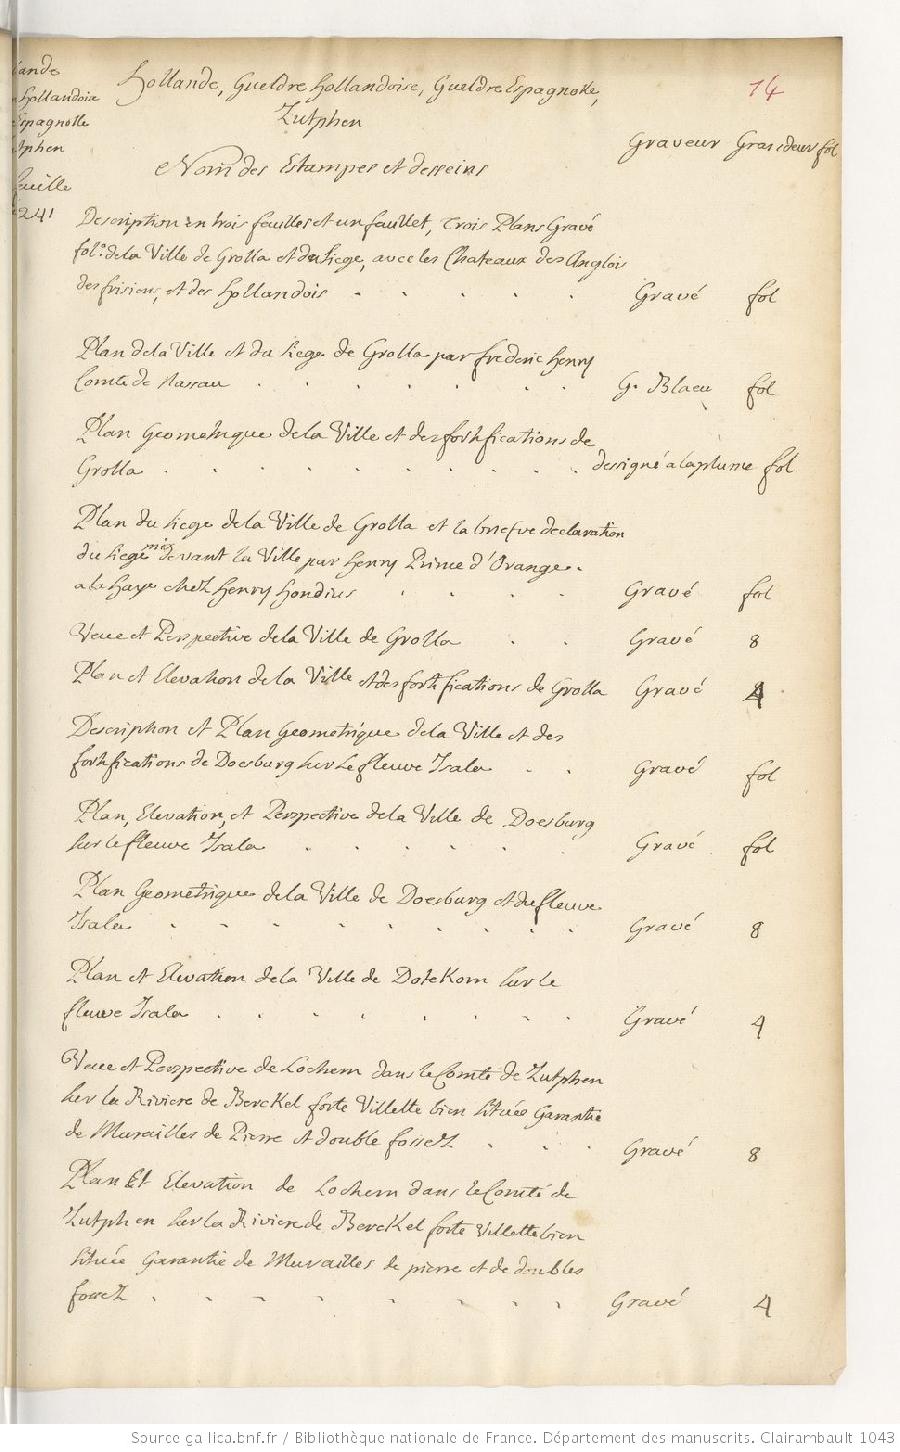 lande
Hollandoise
Espagnolle
tphen
feuille
241
Hollande, Gueldre Hollandoise, Gueldre Espagnole,
Zutphen
14
Graveur Grandeur fol
Nom des Estampes et desseins
Description en trois feuilles et un feuillet, Trois Plans Gravé
fol.o de la Ville de Grolla et du siege, avec les Chateaux des Anglois
des frisiens, et des Hollandois . . . . . Gravé fol
Plan de la Ville et du siege de Grolla par frederic henry
Comte de Nassau . . . . . . . G. Blaeu fol
Plan Geometrique de la Ville et des fortifications de
Grolla . . . . . . . . . dessigné a la plume fol
Plan du siege de la Ville de Grolla et la briefve declaration
du siege mis devant la Ville par henry Prince d'Orange.
a la haye chez henry hondius . . . . Gravé fol
Veue et Perspective de la Ville de Grolla . . Gravé 8
Plan et Elevation de la Ville et des fortifications de Grolla Gravé 4
Description et Plan Geometrique de la Ville et des
fortifications de Doesburg sur le fleuve Isala . . Gravé fol
Plan, Elevation, et Perspective de la Ville de Doesburg
sur le fleuve Isala . . . . . Gravé fol
Plan Geometrique de la Ville de Doesburg et du fleuve
Isala . . . . . . . . . Gravé 8
Plan et Elevation de la Ville de Dotekom sur le
fleuve Isala . . . . . . . . Gravé 4
Veue et Perspective de Lochem dans le Comté de Zutphen
sur la Riviere de Berckel forte Villette bien située Garantie
de Murailles de Pierre et double fossez . . . Gravé 8
Plan Et Elevation de Lochem dans le Comté de
Zutphen sur la Riviere de Berckel forte Villette bien
située Garantie de Murailles de pierre et de doubles
fossez . . . . . . . . . Gravé 4
Source gallica.bnf.fr / Bibliothèque nationale de France. Département des manuscrits. Clairambault 1043